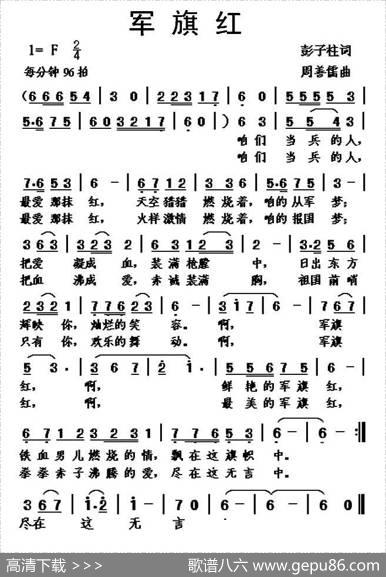 军旗红
1= F 2/4
彭子柱词
每分钟 96 拍
周善儒曲
(6 6 6 5 4 | 3 0 | 2 2 3 1 7 | 6 0 | 5 5 5 5 3 |
5·6 7 5 | 6 0 3 2 1 7 | 6 0 ) | 6 3 | 5 5 4 3 |
咱们 当 兵的人,
咱们 当 兵的人,
7·6 5 3 | 6 - | 6 7 1 2 | 3 3 6 | 5·6 7 5 |
最爱 那抹 红, 天空猎猎 燃烧着, 咱的从军 梦;
最爱 那抹 红, 火样激情 燃烧着, 咱的报国 梦;
3 6 3 | 3 2 3 | 6 1 2 3 | 2 - | 3·2 5 6 |
把爱 凝成 血, 装满枪膛 中, 日出东方
把血 沸成 爱, 赤诚装满 胸, 祖国前哨
2 3 2 1 | 7 7 6 2 3 | 6 - | 3·1 7 | 6 - | 6 7 5 |
辉映 你, 灿烂的笑 容。 啊, 军旗
只有 你, 欢乐的舞 动。 啊, 军旗
5 3· | 3· | 3 6 7 | 2·1 | 5 5 6 7 5 |
红, 啊, 鲜艳的军旗 红,
红, 啊, 最美的军旗 红,
6 7 1 2 | 2 3 2 3 1 | 7 7 6 7 5 | 6 - | 6 - :||
铁血男儿燃烧的情, 飘在这旗帜 中。
拳拳赤子沸腾的爱, 尽在这无言 中。
3 6 7 | 2·1 | 1·2 | 1 - | 7 0 | 6 - | 6 - | 6 0 ||
尽在 这 无言
高清下载 >>>
歌谱八六 www.gepu86.com